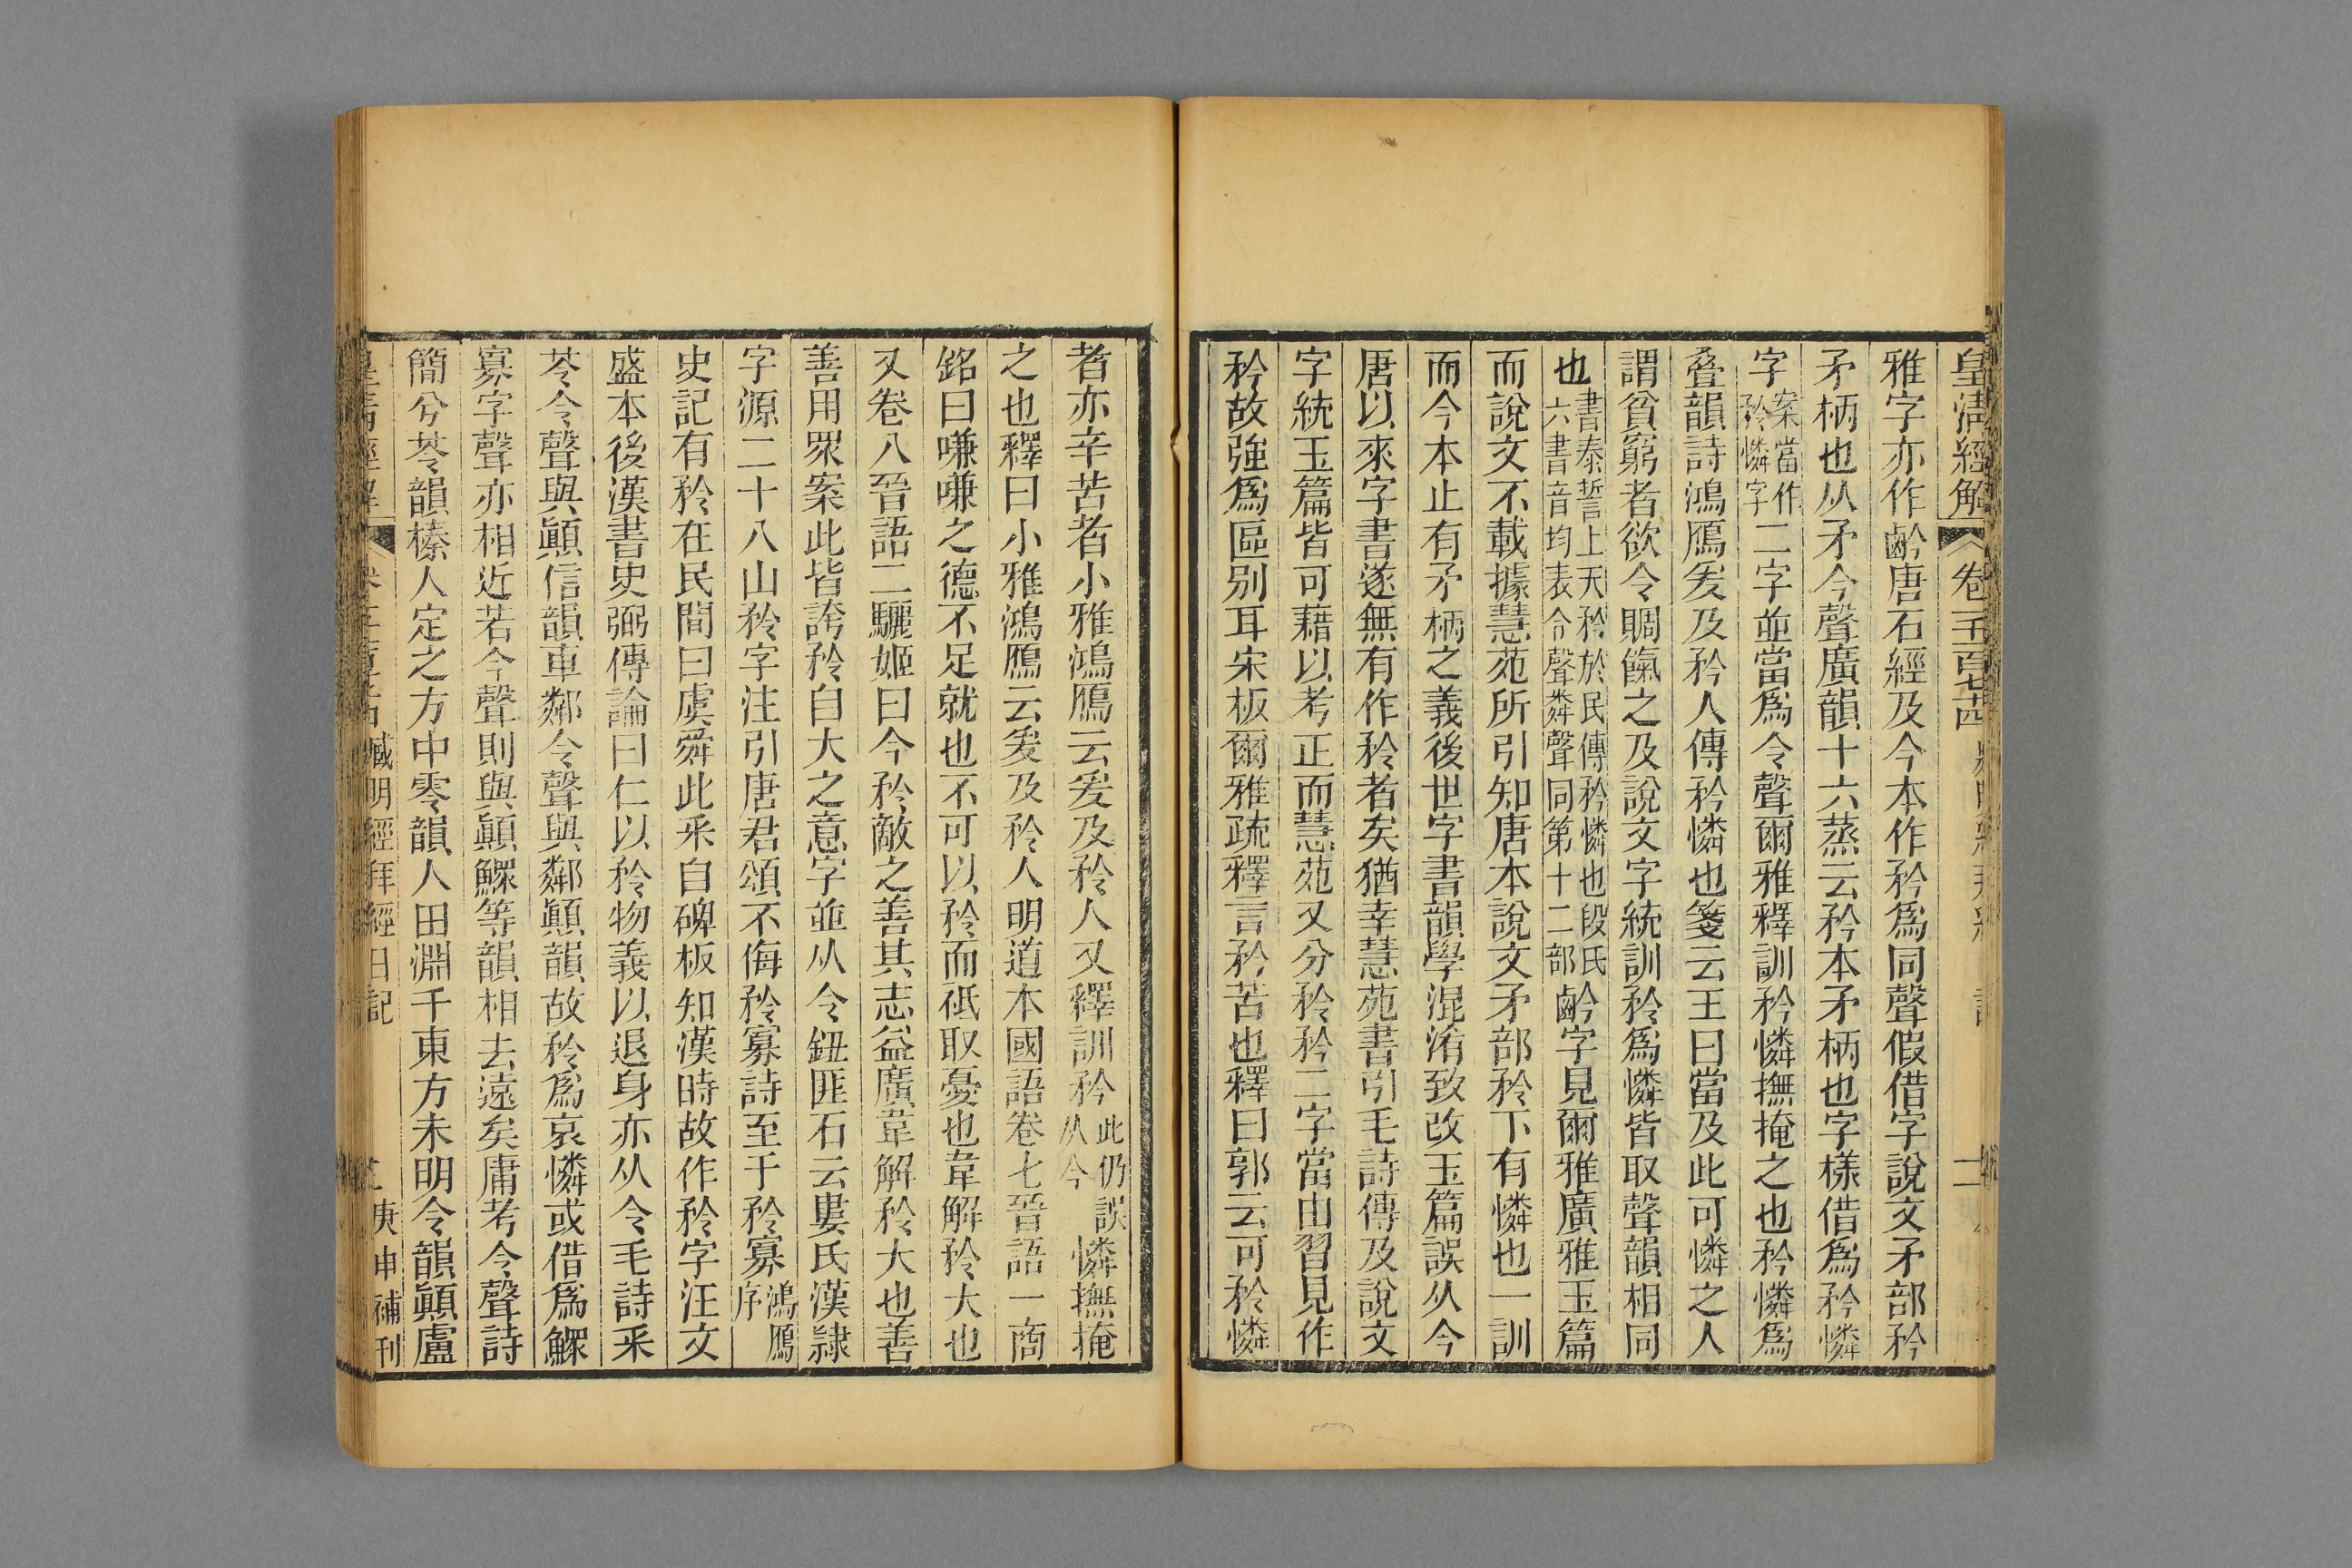 皇清經解 卷一千一百七十四
雅字亦作齡唐石經及今本作矜爲同聲假借字說文矛部矜
矛柄也从矛今聲廣韻十六蒸云矜本矛柄也字樣借爲矜憐
字案當作矜憐字二字並當爲令聲爾雅釋訓矜憐撫掩之也矜憐爲
疊韻詩鴻鴈爰及矜人傳矜憐也箋云王曰當及此可憐之人
謂貧窮者欲令賙餼之及說文字統訓矜爲憐皆取聲韻相同
也書泰誓上天矜於民傳矜憐也段氏六書音均表令聲粦聲同第十二部齡字見爾雅廣雅玉篇
而說文不載據慧苑所引知唐本說文矛部矜下有憐也一訓
而今本止有矛柄之義後世字書韻學混淆致改玉篇誤从今
唐以來字書遂無有作矜者矣猶幸慧苑書引毛詩傳及說文
字統玉篇皆可藉以考正而慧苑又分矜矜二字當由習見作
矜故強爲區別耳宋板爾雅疏釋言矜苦也釋曰郭云可矜憐
者亦辛苦者小雅鴻鴈云爰及矜人又釋訓矜此仍誤从今憐撫掩
之也釋曰小雅鴻鴈云爰及矜人明道本國語卷七晉語一商
銘曰嗛嗛之德不足就也不可以矜而祗取憂也韋解矜大也
又卷八晉語二驪姬曰今矜敵之善其志益廣韋解矜大也善
善用眾案此皆誇矜自大之意字並从令鈕匪石云婁氏漢隸
字源二十八山矜字注引唐君頌不侮矜寡詩至于矜寡鴻鴈序
史記有矜在民間曰虞舜此釆自碑板知漢時故作矜字汪文
盛本後漢書史弼傳論曰仁以矜物義以退身亦从令毛詩釆
苓令聲與顚信韻車鄰令聲與鄰顚韻故矜爲哀憐或借爲鰥
寡字聲亦相近若今聲則與顚鰥等韻相去遠矣庸考令聲詩
簡兮苓韻榛人定之方中零韻人田淵千東方未明令韻顚盧
臧明經拜經日記 庚申補刊